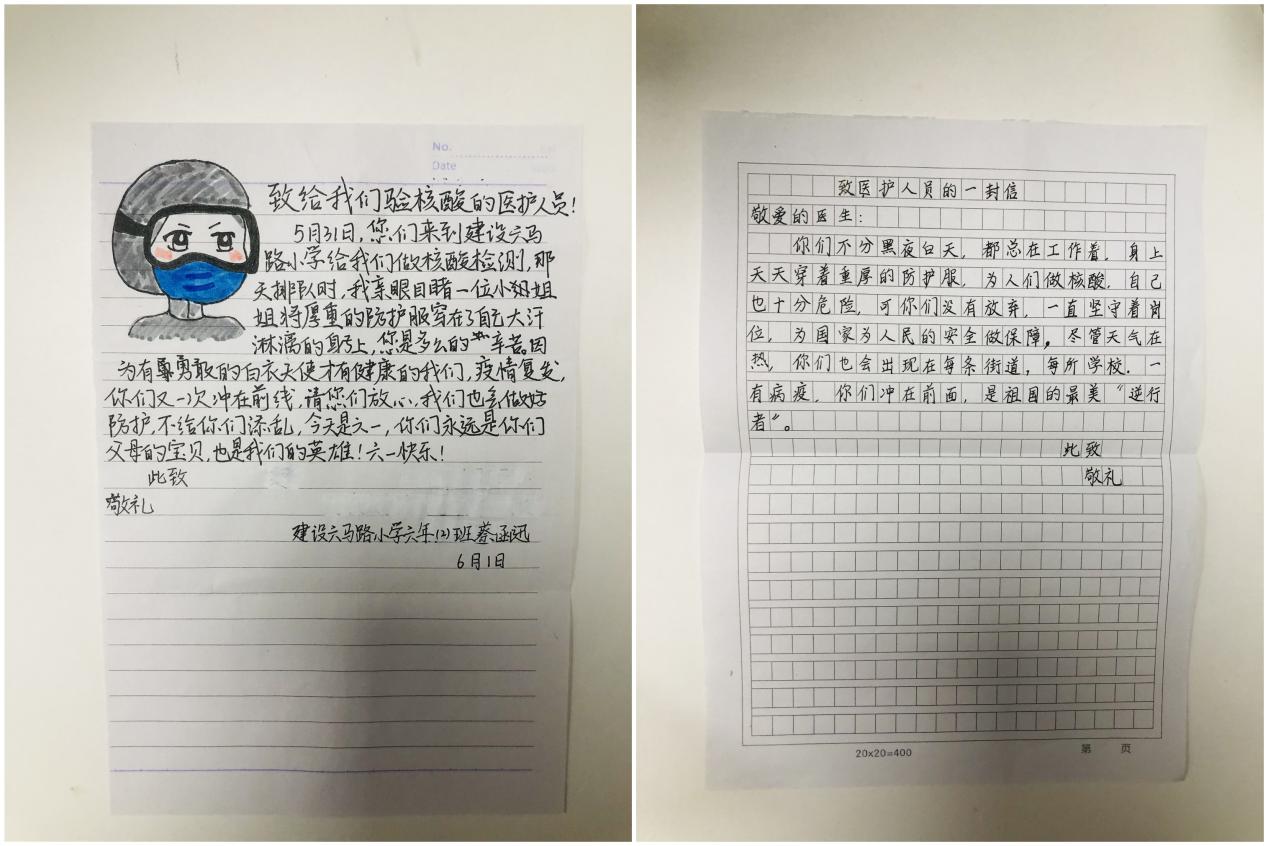 No.
Date
致给我们验核酸的医护人员!
5月31日,您们来到建设六马
路小学给我们做核酸检测,那
天排队时,我亲眼目睹一位小姐姐
姐将厚重的防护服穿在了自己大汗
淋漓的身上,您是多么的辛苦。因
为有勇敢的白衣天使才有健康的我们,疫情复发,
你们又一次冲在前线,请您们放心,我们也会做好
防护,不给你们添乱,今天是六一,你们永远是你们
父母的宝贝,也是我们的英雄!六一快乐!
此致
敬礼
建设六马路小学六年(2)班蔡函迅
6月1日
致医护人员的一封信
敬爱的医生:
你们不分黑夜白天,都总在工作着,身上
天天穿着重厚的防护服,为人们做核酸,自己
也十分危险,可你们没有放弃,一直坚守着岗
位,为国家为人民的安全做保障。尽管天气在
热,你们也会出现在每条街道,每所学校.一
有病疫,你们冲在前面,是祖国的最美“逆行
者”。
此致
敬礼
20x20=400
第 页